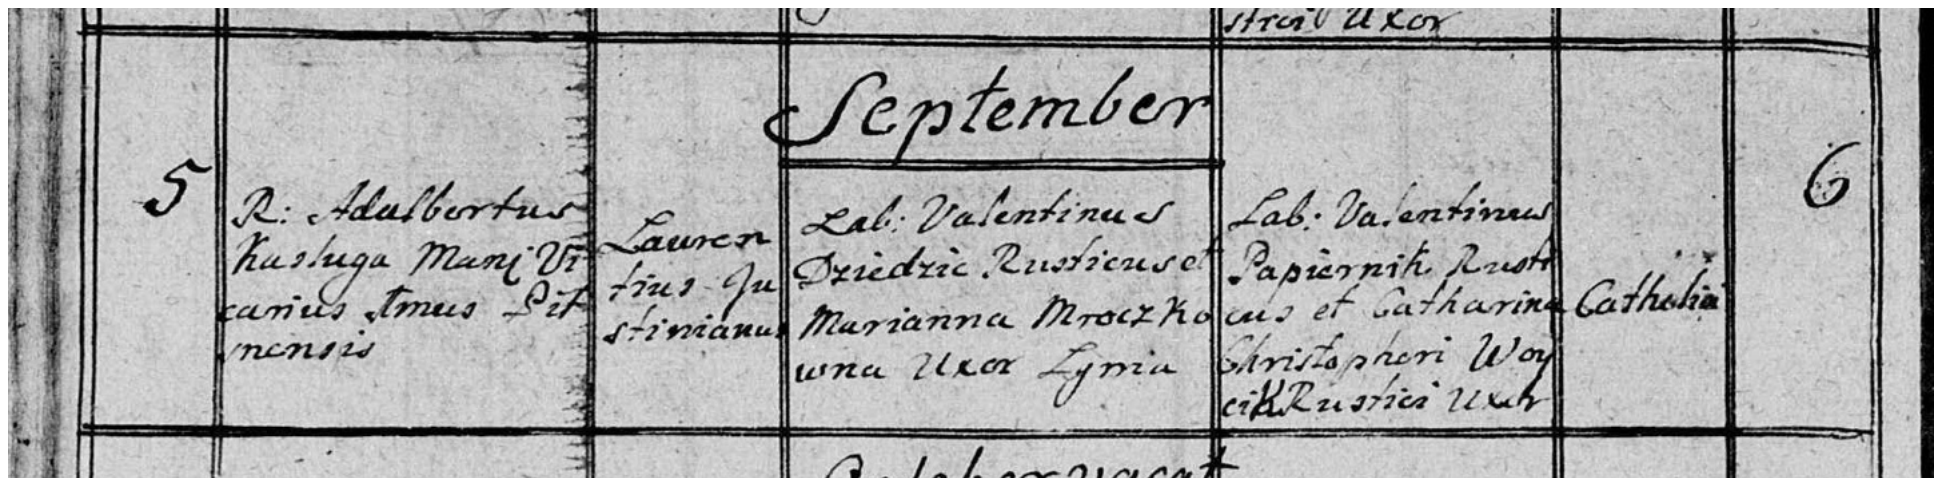 stroi Uxor
September
5
R: Adalbertus
Kasluga Manj Vi
carius Amus Lit
mensis
Lauren
tius Ju
stinianus
Lab: Valentinus
Dziedzic Rusticus et
Marianna Mroczko
wna Uxor Lgnia
Lab: Valentinus
Papiernik Rusti
cus et Catharina
Christopheri Woy
cik Rustici Uxor
Catholici
6
vacat